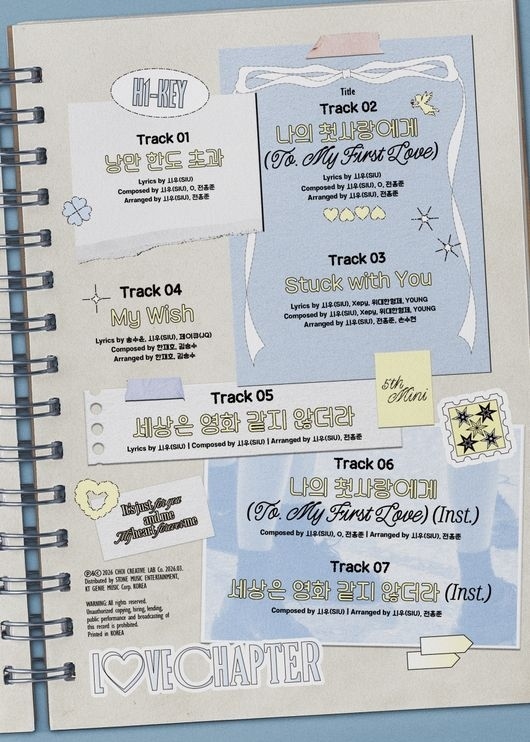 H1-KEY
Track 01
낭만 한도 초과
Lyrics by 시우(SIU)
Composed by 시우(SIU), O, 전홍준
Arranged by 시우(SIU), 전홍준
Title
Track 02
나의 첫사랑에게
(To. My First Love)
Lyrics by 시우(SIU)
Composed by 시우(SIU), O, 전홍준
Arranged by 시우(SIU), 전홍준
Track 03
Stuck with You
Lyrics by 시우(SIU), Xepy, 위대한형제, YOUNG
Composed by 시우(SIU), Xepy, 위대한형제, YOUNG
Arranged by 시우(SIU), 전홍준, 손수현
Track 04
My Wish
Lyrics by 송수윤, 시우(SIU), 제이큐(JQ)
Composed by 한재호, 김승수
Arranged by 한재호, 김승수
5th
Mini
Track 05
세상은 영화 같지 않더라
Lyrics by 시우(SIU) | Composed by 시우(SIU) | Arranged by 시우(SIU), 전홍준
Track 06
나의 첫사랑에게
(To. My First Love) (Inst.)
Composed by 시우(SIU), O, 전홍준 | Arranged by 시우(SIU), 전홍준
Track 07
세상은 영화 같지 않더라 (Inst.)
Composed by 시우(SIU) | Arranged by 시우(SIU), 전홍준
It's just for you
and me
My heart forever me
℗&© 2026 CHOI CREATIVE LAB Co. 2026.03.
Distributed by STONE MUSIC ENTERTAINMENT,
KT GENIE MUSIC Corp. KOREA
WARNING: All rights reserved.
Unauthorized copying, hiring, lending,
public performance and broadcasting of
this record is prohibited.
Printed in KOREA
LOVE CHAPTER